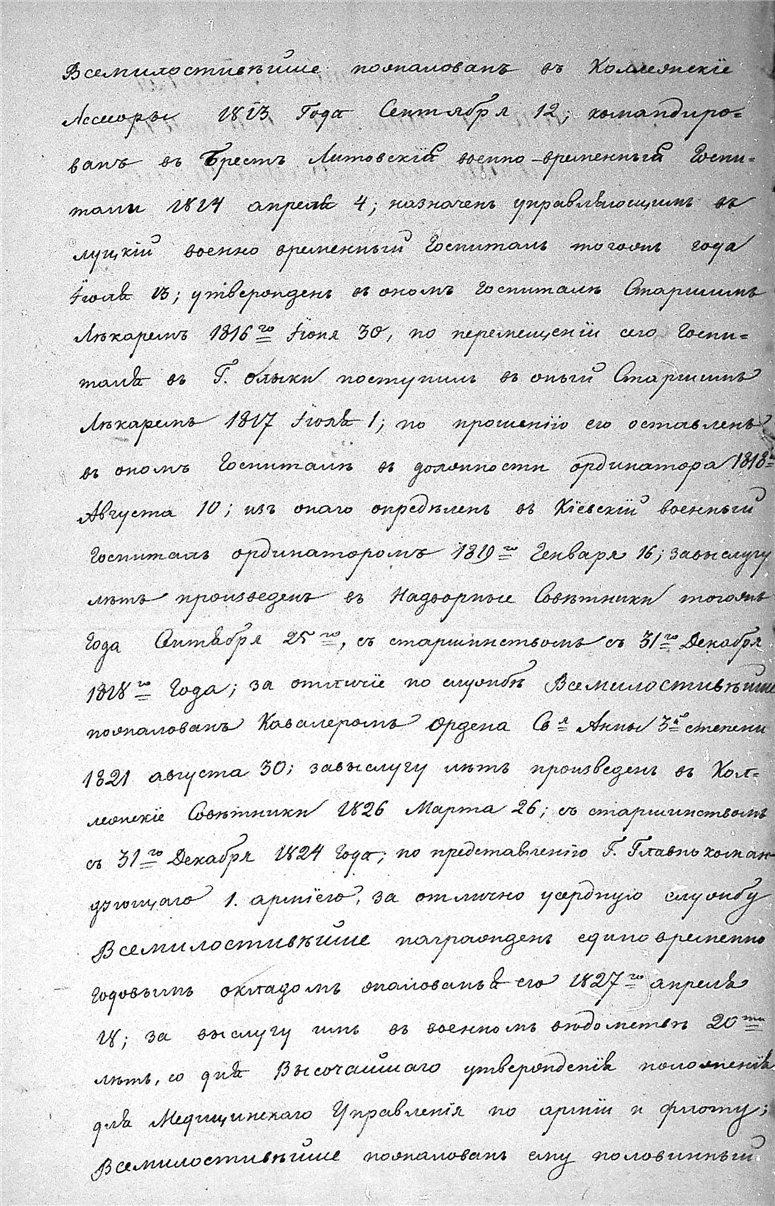 Всемилостивѣйше пожалованъ въ Коллежскіе
Ассесоры 1813 Года Сентября 12; командиро-
ванъ въ Брестъ Литовскій военно-временный Госпи-
таль 1814 апрелѣ 4; назначенъ управляющимъ въ
луцкій военно временный Госпиталь тогожъ года
Іюля 13; утвержденъ въ ономъ Госпиталѣ Старшимъ
Лѣкаремъ 1816го Іюня 30, по перемещеніи сего Госпи-
таля въ Г. Олыки поступилъ въ оный Старшимъ
Лѣкаремъ 1817 Іюля 1; по прошенію его оставленъ
въ ономъ Госпиталѣ въ должности ординатора 1818го
Августа 10; изъ онаго опредѣленъ въ Кіевскій военный
Госпиталь ординаторомъ 1819го Генваря 16; завыслугу
лѣтъ произведенъ въ Надворные Совѣтники тогожъ
Года Сентября 25го, съ старшинствомъ съ 31го Декабря
1818го Года; за отличіе по службѣ Всемилостивѣйше
пожалованъ Кавалеромъ Ордена Свя Анны 3й степени
1821 августа 30; завыслугу лѣтъ произведенъ въ Кол-
лежскіе Совѣтники 1826 Марта 26; съ старшинствомъ
съ 31го Декабря 1824 Года; по представленію Г. Главнокоман-
дующаго 1. арміею, за отлично усердную службу
Всемилостивѣйше награжденъ единовременно
годовымъ окладомъ жалованья его 1827го апреля
18; за выслугу имъ въ военномъ вѣдомствѣ 20ти
лѣтъ, со дня Высочайшаго утвержденія положенія
для Медицинскаго Управленія по арміи и флоту;
Всемилостивѣйше пожалованъ ему половинный